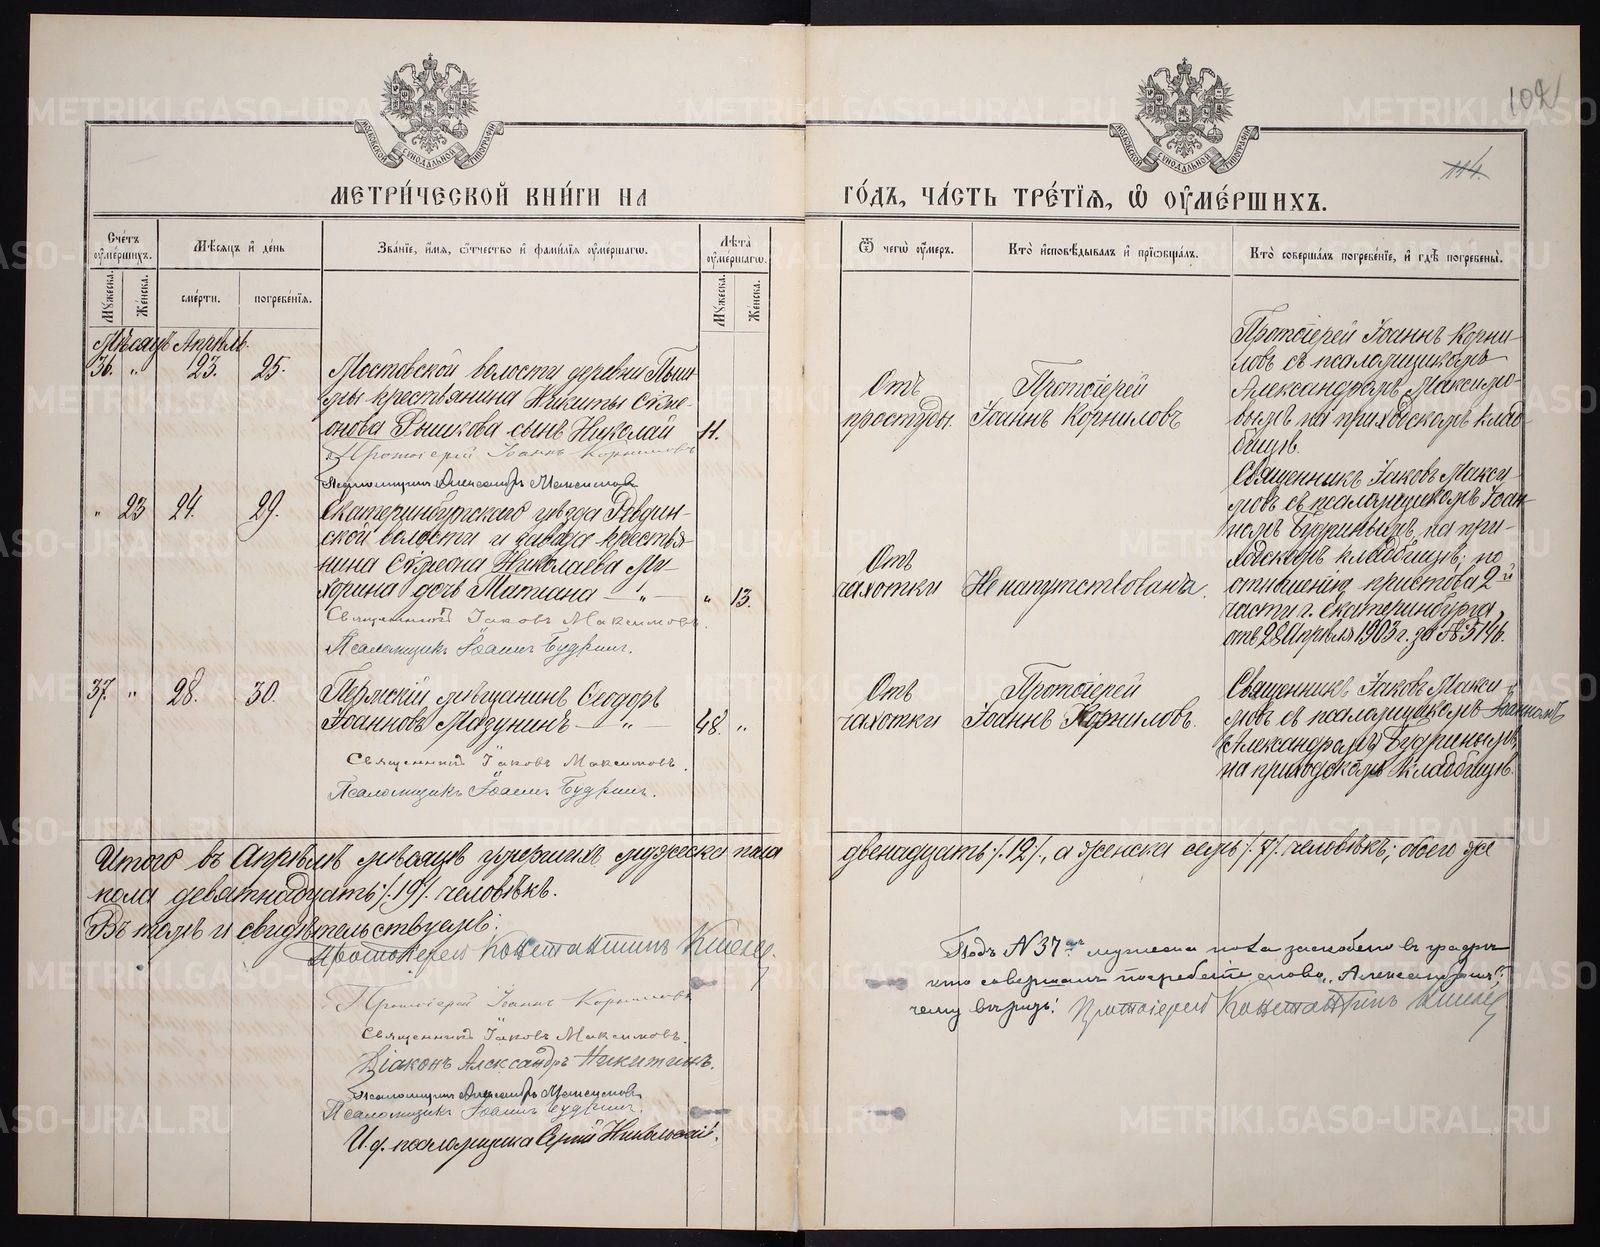 102
114.
МЕТРИ́ЧЕСКОЙ КНИ́ГИ НА ГО́ДЪ, ЧА́СТЬ ТРЕ́ТІЯ, Ѡ ОУМЕ́РШИХЪ.
Сче́тъ оуме́ршихъ.
Мѣ́сяцъ и де́нь
Зва́нїе, и́мя, о́тчество и фами́лїя оуме́ршагѡ.
Лѣ́та оуме́ршагѡ.
Ѿ чегѡ̀ оу́меръ.
Кто̀ исповѣ́дывалъ и прїѡбща́лъ.
Кто̀ соверша́лъ погребе́нїе, и гдѣ̀ погребе́ны.
Му́жеска.
Же́нска.
сме́рти.
погребе́нїя.
Му́жеска.
Же́нска.
Мѣсяцъ Апрѣль.
36. „ 23. 25.
Мостовской волости деревни Пыш-
мы крестьянина Никиты Симе-
онова сынъ Николай
11.
Протоіерей Іоаннъ Корниловъ
Псаломщикъ Александръ Максимовъ
Отъ
простуды.
Протоіерей
Іоаннъ Корниловъ
Протоіерей Іоаннъ Корни-
ловъ съ псаломщикомъ
Александромъ Максимо-
вымъ на приходскомъ клад-
бищѣ.
„ 23 24. 29.
Екатеринбургскаго уѣзда Ревдин-
ской волости и завода крестья-
нина Симеона Николаева Ми-
хорина дочь Татiана — „ —
„ 13.
Священникъ Іаковъ Максимовъ.
Псаломщикъ Іоаннъ Будринъ.
Отъ
чахотки
Не напутствована.
Священникъ Іаковъ Макси-
мовъ съ псаломщикомъ Іоан-
номъ Будринымъ, на при-
ходскомъ кладбищѣ; по
отношенію пристава 2й
части г. Екатеринбурга,
отъ 28 Апрѣля 1903 г. за №5146.
37. „ 28. 30.
Пермскій мѣщанинъ Ѳеодоръ
Іоанновъ Мазунинъ — „ —
48. „
Священникъ Іаковъ Максимовъ.
Псаломщикъ Іоаннъ Будринъ.
Отъ
чахотки
Протоіерей
Іоаннъ Корниловъ.
Священникъ Іаковъ Макси-
мовъ съ псаломщикомъ Іоанномъ
Александромъ Будринымъ,
на приходскомъ кладбищѣ.
Итого въ Апрѣлѣ мѣсяцѣ умершихъ мужеска пола двенадцать /.12/., а женска семь /.7/. человѣкъ; обоего же
пола девятнадцать /.19/. человѣкъ.
Въ томъ и свидѣтельствуемъ:
Протоіерей Константинъ
Протоіерей Іоаннъ Корниловъ
Священникъ Іаковъ Максимовъ.
Діаконъ Александръ Никитинъ.
Псаломщикъ Александръ Максимовъ
Псаломщикъ Іоаннъ Будринъ.
И. д. псаломщика Сергій Никольскій.
Подъ №37мъ мужеска пола заскоблено въ графѣ:
кто совершалъ погребеніе слово „Александромъ":
чему вѣрить! Протоіерей Константинъ